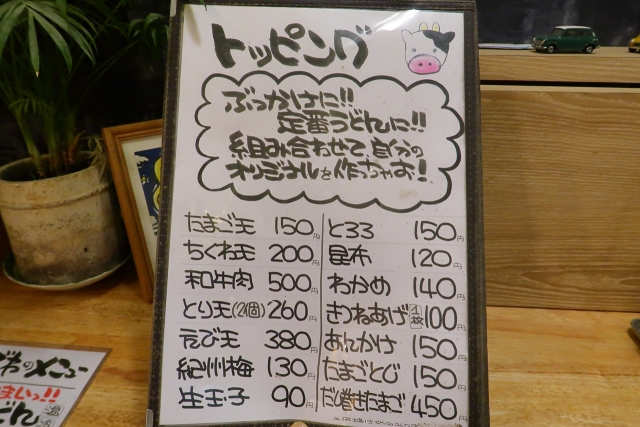 トッピング
ぶっかけに!!
定番うどんに!!
組み合わせて、自分の
オリジナルを作っちゃお!
たまご天 150円
ちくわ天 200円
和牛肉 500円
とり天(2個) 260円
えび天 380円
紀州梅 130円
生玉子 90円
とろろ 150円
昆布 120円
わかめ 140円
きつねあげ1枚 100円
あんかけ 150円
たまごとじ 150円
だし巻きたまご 450円
のメニュー
まいっ!!
どん